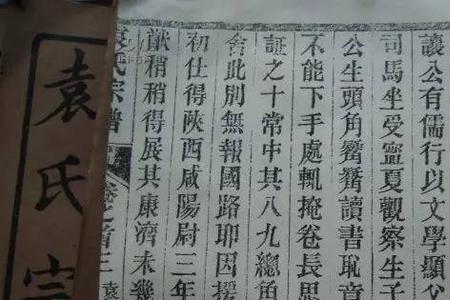 讓公有儒行以文學顯父
司馬坐受寧夏觀察生子
公生頭角嶄嶄讀書恥章
不能下手處輒掩卷長思
証之十常中其八九總角
舍此別無報國路耶因援
初仕得陝西咸陽尉三年
猷稍稍得展其康濟未幾
袁氏宗譜
卷之首三
袁
袁氏宗